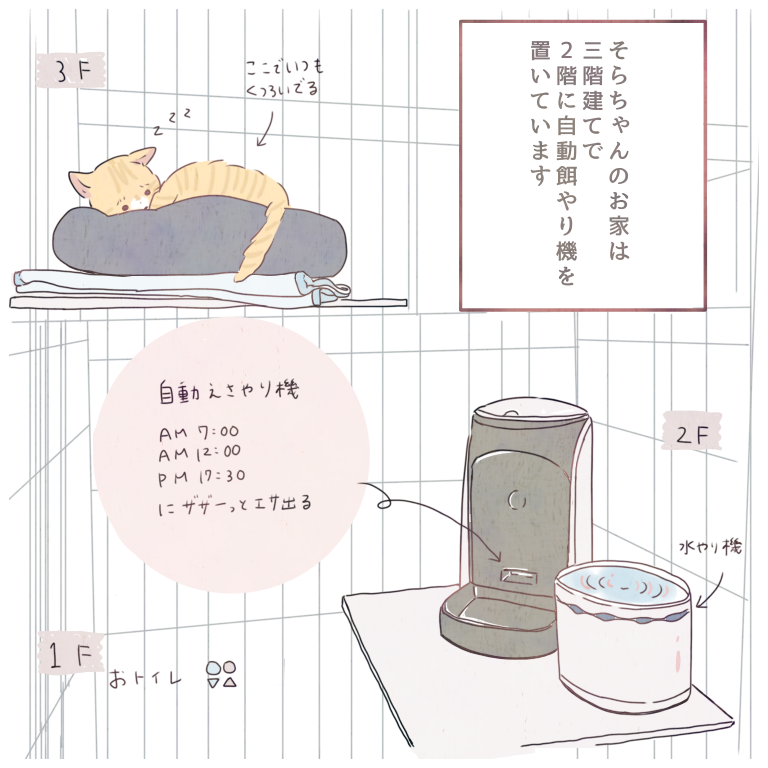 そらちゃんのお家は
三階建てで
２階に自動餌やり機を
置いています
3F
ここでいつも
くつろいでる
z z z
自動えさやり機
AM 7:00
AM 12:00
PM 17:30
にザザーっとエサ出る
2F
水やり機
1F
おトイレ